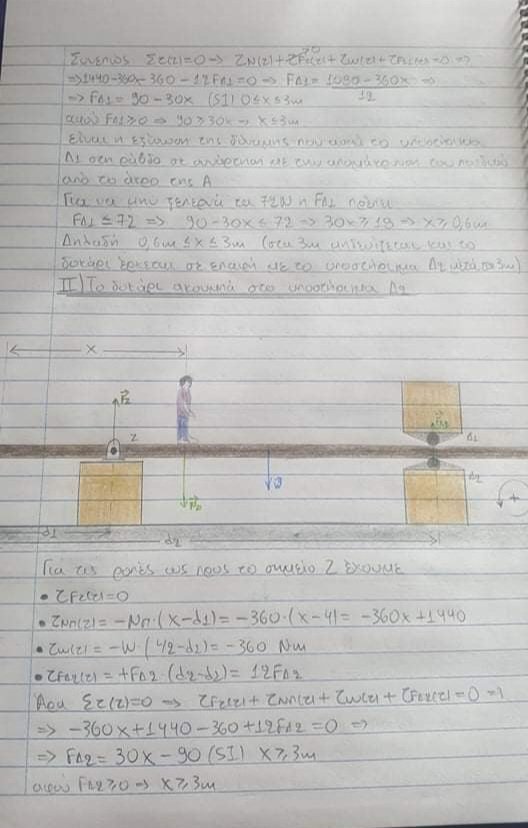 Συνεπώς Στ(z)=0 => τN(z)+τFz(z)+τw(z)+τFΔ1(z)=0 =>
=> 1440-360x-360-12FΔ1=0 => FΔ1= 1080-360x =>
12
=> FΔ1= 90-30x (SI) 0≤x≤3m
αφού FΔ1≥0 => 90≥30x => x≤3m
είναι η εξίσωση της δύναμης που ασκεί το υποστήριγμα
Δ1 στη ράβδο σε συνάρτηση με την απομάκρυνση του παιδιού
από το άκρο της Α
Για να μην ξεπερνά τα 72N η FΔ1 πρέπει
FΔ1≤72 => 90-30x≤72 => 30x≥18 => x≥0,6m
Δηλαδή 0,6m≤x≤3m (στα 3m μηδενίζεται και το
δοκάρι έρχεται σε επαφή με το υποστήριγμα Δ2 μετά τα 3m)
II) Το δοκάρι ακουμπά στο υποστήριγμα Δ2
x
Fz
z
Δ1
Δ2
W
+
d1
d2
Για τις ροπές ως προς το σημείο Z έχουμε
• τFz(z)=0
• τNπ(z)= -Nπ·(x-d1)= -360·(x-4)= -360x+1440
• τw(z)= -W·(-d1)= -360 Nm
• τFΔ2(z)= +FΔ2·(d2-d1)= 12FΔ2
Άρα Στ(z)=0 => τFz(z)+τNπ(z)+τw(z)+τFΔ2(z)=0 =>
=> -360x+1440-360+12FΔ2=0 =>
=> FΔ2= 30x-90 (SI) x≥3m
αφού FΔ2≥0 => x≥3m